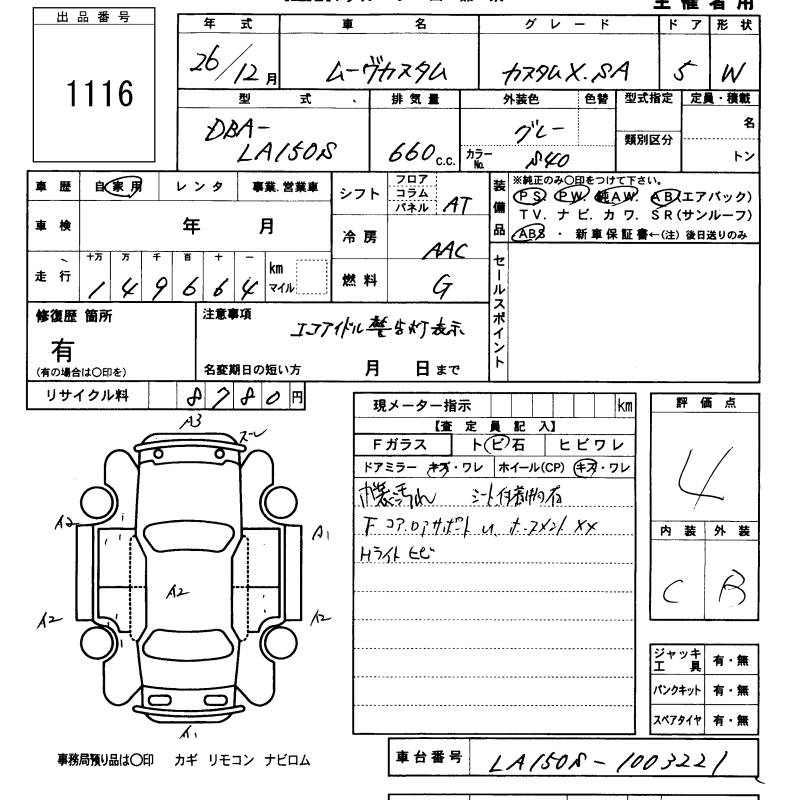 出品番号
1116
主催者用
年式 車名 グレード ドア 形状
26/12月 ムーヴカスタム カスタムX.SA 5 W
型式 排気量 外装色 色替 型式指定 定員・積載
DBA-
LA150S 660c.c. グレー 類別区分 名
カラーNo. S40 トン
車歴 自家用 レンタ 事業.営業車
車検 年 月
走行 十万 万 千 百 十 一
1 4 9 6 6 4 km マイル
シフト フロア コラム パネル AT
冷房 AAC
燃料 G
装備品 ※純正のみ○印をつけて下さい。
PS. PW. 純AW. AB(エアバック)
TV. ナビ. カワ. SR(サンルーフ)
ABS ・ 新車保証書←(注)後日送りのみ
セールスポイント
修復歴 箇所
有
(有の場合は○印を)
注意事項
エコアイドル警告灯表示
名変期日の短い方 月 日まで
リサイクル料 8780円
現メーター指示 km
【査定員記入】
Fガラス トビ石 ヒビワレ
ドアミラー キズ・ワレ ホイール(CP) キズ・ワレ
内装汚れ
Hライト ヒビ
評価点
4
内装 外装
C B
ジャッキ 工具 有・無
パンクキット 有・無
スペアタイヤ 有・無
A3
ズレ
A2
A1
A2
A2
A2
A1
事務局預り品は○印 カギ リモコン ナビロム
車台番号 LA150S-1003221